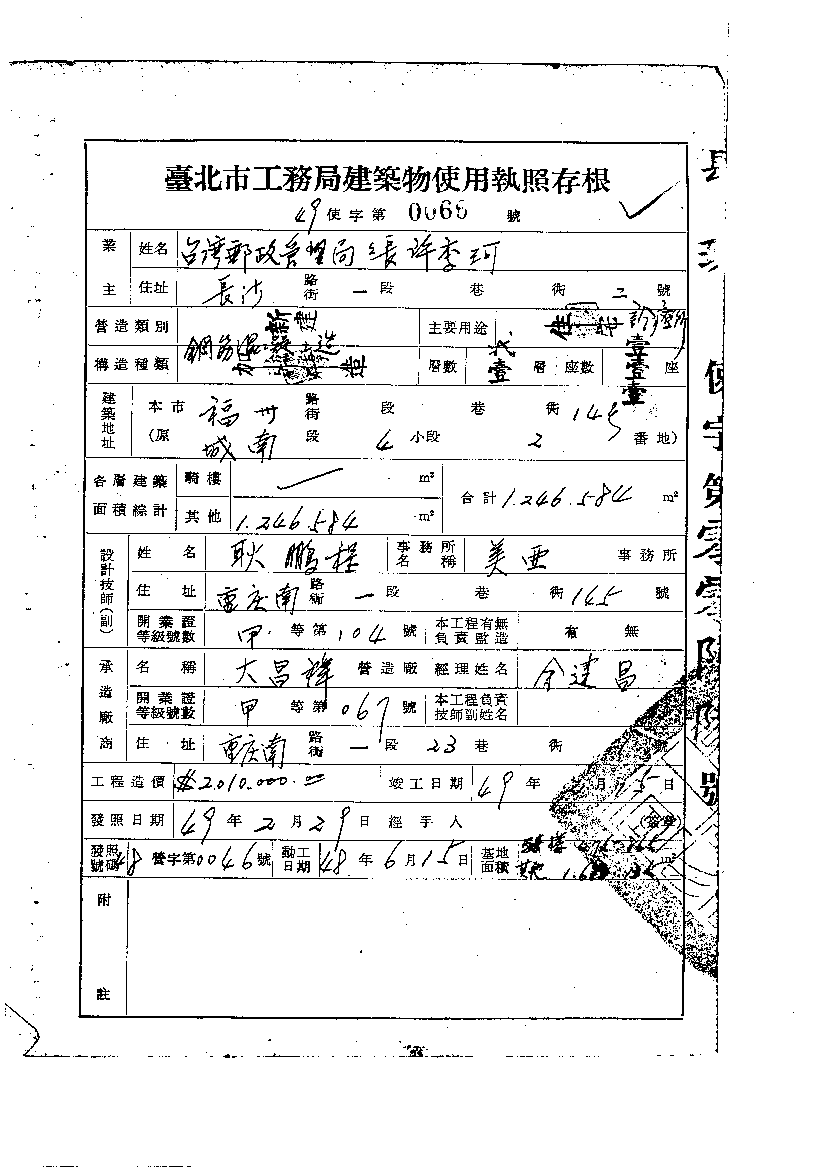 臺北市工務局建築物使用執照存根
49使字第 0066 號
業主 姓名 台灣郵政管理局局長許季珂
住址 長沙 路街 一 段 巷 衖 二 號
營造類別 新建 主要用途 診療所
構造種類 鋼筋混凝土造 層數 層 座數 壹 座
建築地址 本市 福州 路街 段 巷 衖 145
(原 城南 段 4 小段 2 番地)
各層建築面積綜計 騎樓 m² 合計 1.246.584 m²
其他 1.246.584 m²
設計技師(副) 姓名 耿鵬程 事務所名稱 美亜 事務所
住址 重庆南 路街 一 段 巷 衖 145 號
開業證等級號數 甲 等第 104 號 本工程有無負責監造 有 無
承造廠商 名稱 大昌祥 營造廠 經理姓名 余建昌
開業證等級號數 甲 等第 067 號 本工程負責技師副姓名
住址 重庆南 路街 一 段 23 巷 衖 號
工程造價 $2,010,000.00 竣工日期 49 年 月 15 日
發照日期 49 年 2 月 29 日 經手人
發照號碼 48 營字第0046號 動工日期 48 年 6 月 15 日 基地面積
附註
使字第零零陸陸號